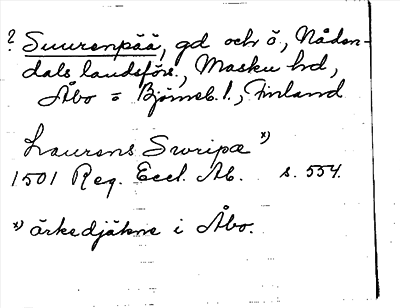 ? Suurenpää, gd och ö, Nåden-
dals landsförs., Masku hd,
Åbo o Björneb. l., Finland
Laurens Swripæ x)
1501 Reg. Eccl. Ab. s. 554.
x) ärkedjäkne i Åbo.